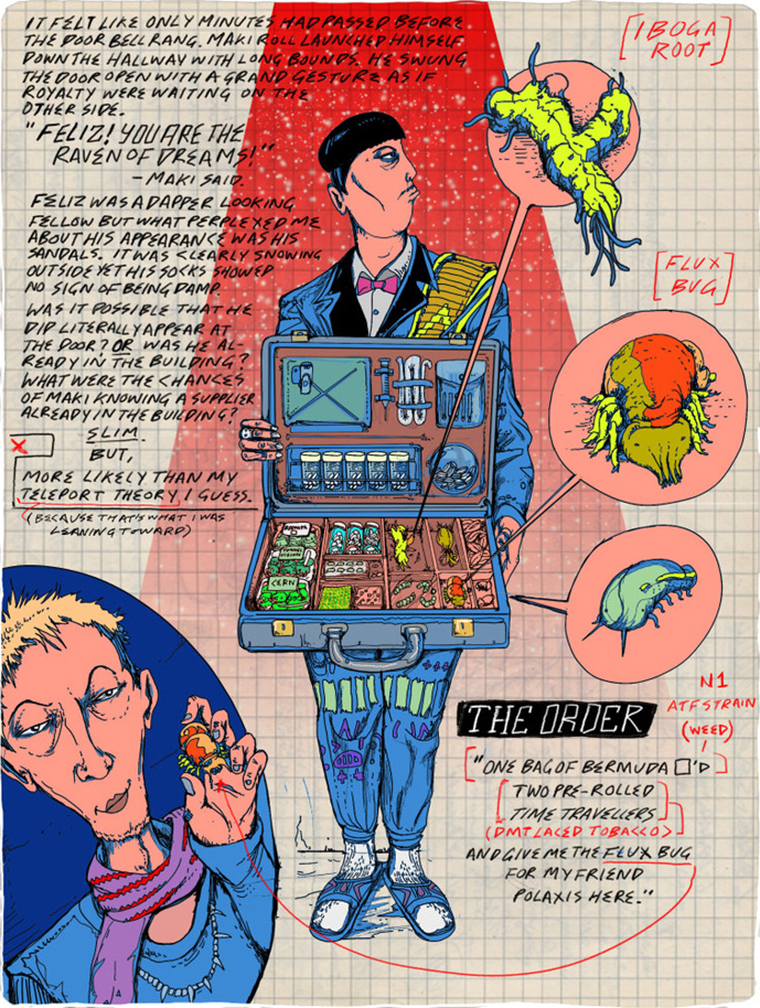 IT FELT LIKE ONLY MINUTES HAD PASSED BEFORE
THE DOOR BELL RANG. MAKI ROLL LAUNCHED HIMSELF
DOWN THE HALLWAY WITH LONG BOUNDS. HE SWUNG
THE DOOR OPEN WITH A GRAND GESTURE AS IF
ROYALTY WERE WAITING ON THE
OTHER SIDE.
"FELIZ! YOU ARE THE
RAVEN OF DREAMS!"
- MAKI SAID.
FELIZ WAS A DAPPER LOOKING
FELLOW BUT WHAT PERPLEXED ME
ABOUT HIS APPEARANCE WAS HIS
SANDALS. IT WAS CLEARLY SNOWING
OUTSIDE YET HIS SOCKS SHOWED
NO SIGN OF BEING DAMP.
WAS IT POSSIBLE THAT HE
DID LITERALLY APPEAR AT
THE DOOR? OR WAS HE AL-
READY IN THE BUILDING?
WHAT WERE THE CHANCES
OF MAKI KNOWING A SUPPLIER
ALREADY IN THE BUILDING?
SLIM.
BUT,
MORE LIKELY THAN MY
TELEPORT THEORY, I GUESS.
(BECAUSE THAT'S WHAT I WAS
LEANING TOWARD)
[IBOGA
ROOT]
[FLUX
BUG]
CERN
THE ORDER
N1
ATF STRAIN
(WEED)
"ONE BAG OF BERMUDA □'D
TWO PRE-ROLLED
TIME TRAVELLERS
(DMT LACED TOBACCO)
AND GIVE ME THE FLUX BUG
FOR MY FRIEND
POLAXIS HERE."